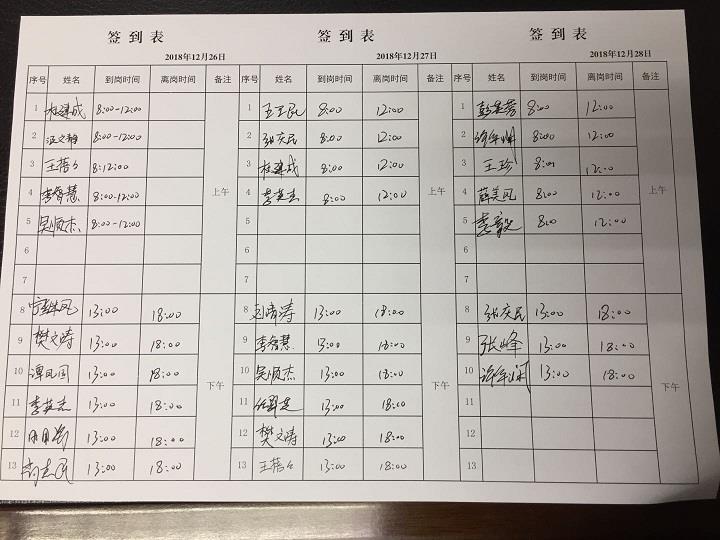 签到表
2018年12月26日
序号 姓名 到岗时间 离岗时间 备注
1 杜建成 8:00-12:00
2 汪文静 8:00-12:00
3 王蓓蓓 8:12:00
4 李智慧 8:00-12:00
5 吴顺杰 8:00-12:00
6
7
上午
8 13:00 18:00
9 樊文涛 13:00 18:00
10 谭凤国 13:00 18:00
11 李英杰 13:00 18:00
12 13:00 18:00
13 13:00 18:00
下午
签到表
2018年12月27日
序号 姓名 到岗时间 离岗时间 备注
1 8:00 12:00
2 张庆民 8:00 12:00
3 杜建成 8:00 12:00
4 李英杰 8:00 12:00
5
6
7
上午
8 13:00 18:00
9 李智慧 13:00 18:00
10 吴顺杰 13:00 18:00
11 13:00 18:00
12 樊文涛 13:00 18:00
13 王蓓蓓 13:00 18:00
下午
签到表
2018年12月28日
序号 姓名 到岗时间 离岗时间 备注
1 8:00 12:00
2 8:00 12:00
3 王珍 8:00 12:00
4 薛美凤 8:00 12:00
5 李毅 8:00 12:00
6
7
上午
8 张庆民 13:00 18:00
9 张峰 13:00 18:00
10 13:00 18:00
11
12
13
下午